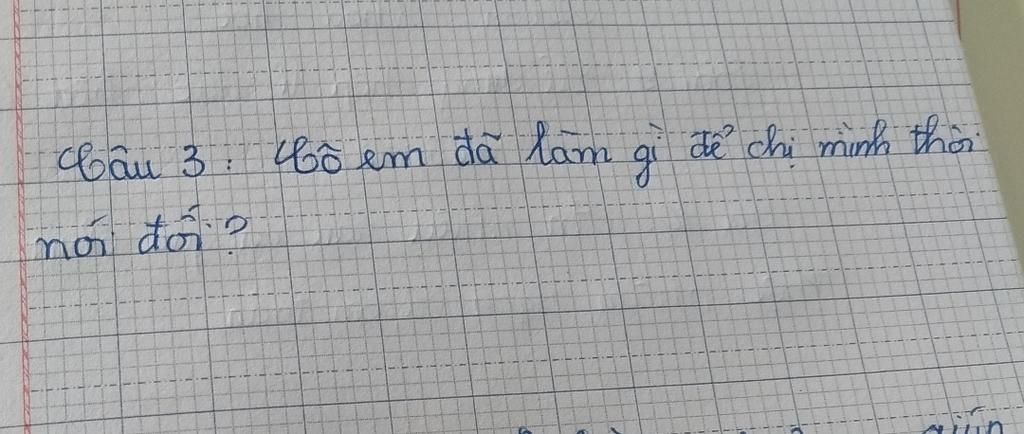 Câu 3: Cô em đã làm gì để chị mình thôi
nói dối?